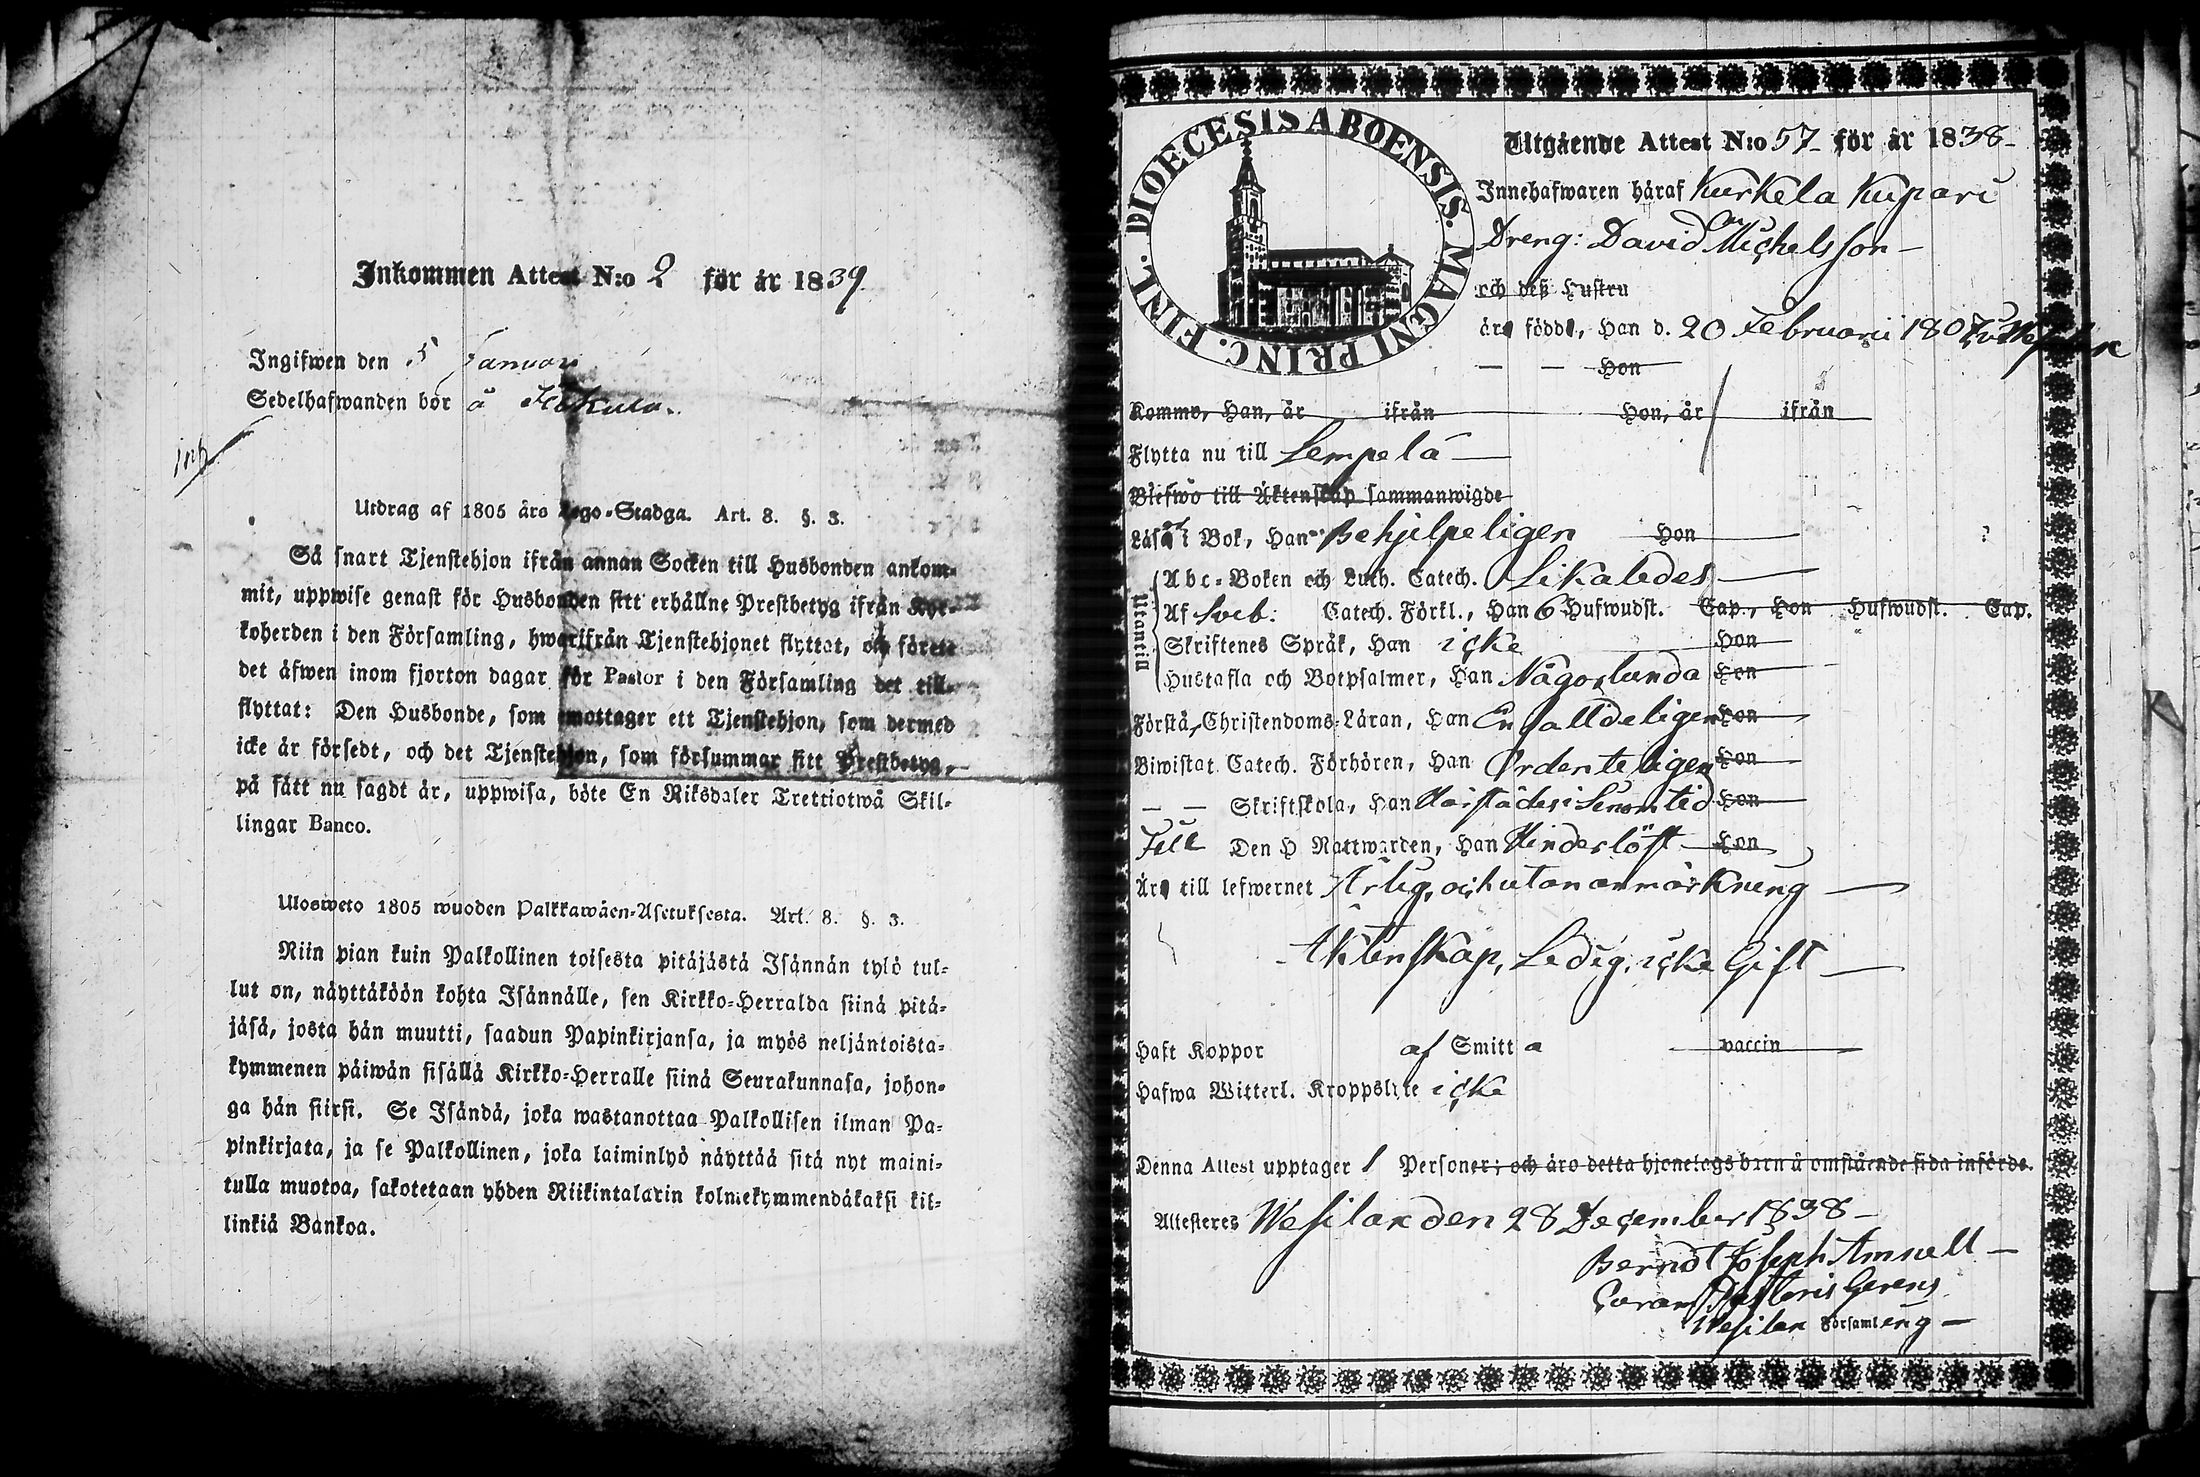 Inkommen Attest N:o 2 för år 1839
Ingifwen den 5 Januari
Sedelhafwanden bor å
Utdrag af 1805 års Lego-Stadga. Art. 8. §. 3.
Så snart Tjenstehjon ifrån annan Socken till Husbonden ankom-
mit, uppwise genast för Husbonden sitt erhållne Prestbetyg ifrån Kyr-
koherden i den Församling, hwarifrån Tjenstehjonet flyttat, och förete
det äfwen inom fjorton dagar för Pastor i den Församling det till-
flyttat: Den Husbonde, som emottager ett Tjenstehjon, som dermed
icke är försedt, och det Tjenstehjon, som försummar sitt Prestbetyg,
på sätt nu sagdt är, uppwisa, böte En Riksdaler Trettiotwå Skil-
lingar Banco.
Ulosweto 1805 wuoden Palkkawäen-Asetuksesta. Art. 8. §. 3.
Niin pian kuin Palkollinen toisesta pitäjästä Isännän tylö tul-
lut on, näyttäköön kohta Isännälle, sen Kirkko-Herralda siinä pitä-
jäsä, josta hän muutti, saadun Papinkirjansa, ja myös neljäntoista-
kymmenen päiwän sisällä Kirkko-Herralle siinä Seurakunnasa, johon-
ga hän siirsi. Se Isändä, joka wastanottaa Palkollisen ilman Pa-
pinkirjata, ja se Palkollinen, joka laiminlyö näyttää sitä nyt maini-
tulla muotoa, sakotetaan yhden Riikintalarin kolmekymmendäkaksi kil-
linkiä Bankoa.
DIOECESIS ABOENSIS. MAGNI PRINC. FINL.
Utgående Attest N:o 57 för år 1838
Innehafwaren häraf Kurkela Kupari
Dreng: David Michelsson
och dess Hustru
äro födde, Han d. 20 Februarii 180
Hon
Komme, Han, år ifrån Hon, år ifrån
Flytta nu till Lempelä
Blefwo till Äktenskap sammanwigde
Läsa i Bok, Han Behjelpeligen Hon
Utantill
Abc-Boken och Luth. Catech. Likaledes
Af Sveb: Catech. Förkl., Han 6 Hufwudst. Cap., Hon Hufwudst. Cap.
Skriftenes Språk, Han icke Hon
Hustafla och Botpsalmer, Han Någorlunda Hon
Förstå Christendoms-Läran, Han Enfalldeligen Hon
Biwistat Catech. Förhören, Han Ordenteligen Hon
Skriftskola, Han i Hon
Till Den H Nattwarden, Han Hinderlöst Hon
Äro till lefwernet Ärlig, och utan anmärkning
Äktenskap, Ledig, icke Gift
Haft Koppor af Smitta vaccin
Hafwa Witterl. Kroppslyte icke
Denna Attest upptager 1 Personer; och äro detta hjonelags barn å omstående sida införde.
Attesteres Wesilax den 28 December 1838
Berndt Joseph Amnell
Pastoris Gerens
Wesilax Församling